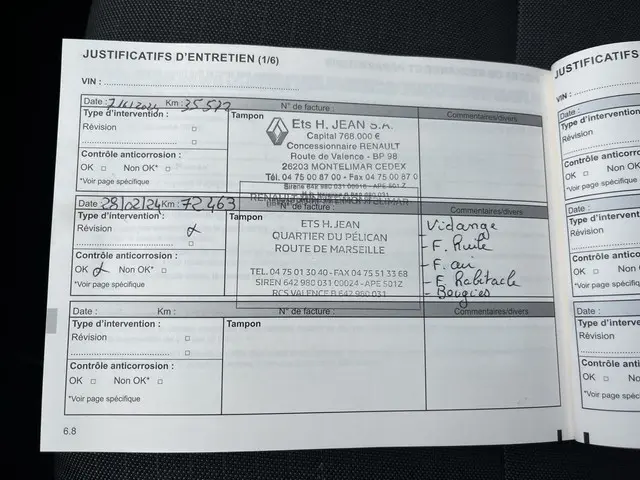 JUSTIFICATIFS D'ENTRETIEN (1/6)
VIN :
Date : Km : 35 577 N° de facture : Commentaires/divers
Type d'intervention : Tampon
Révision
Contrôle anticorrosion :
OK Non OK*
*Voir page spécifique
Ets H. JEAN S.A.
Capital 768.000 €
Concessionnaire RENAULT
Route de Valence - BP 98
26203 MONTELIMAR CEDEX
Tél. 04 75 00 87 00 - Fax 04 75 00 87
Siren 642 980 031 - APE 501Z
Date : 28/02/24 Km : 72 463 N° de facture : Commentaires/divers
Type d'intervention : Tampon
Révision
Contrôle anticorrosion :
OK Non OK*
*Voir page spécifique
RENAULT MONTELIMAR
ETS H. JEAN
QUARTIER DU PÉLICAN
ROUTE DE MARSEILLE
TEL. 04 75 01 30 40 - FAX 04 75 51 33 68
SIREN 642 980 031 00024 - APE 501Z
RCS VALENCE B 642 980 031
Vidange
- F. Huile
- F. air
- F. Habitacle
- Bougies
Date : Km : N° de facture : Commentaires/divers
Type d'intervention : Tampon
Révision
Contrôle anticorrosion :
OK Non OK*
*Voir page spécifique
6.8
JUSTIFICATIFS
VIN :
Date :
Type d'interve
Révision
Contrôle antico
OK
*Voir page spécifi
Date :
Type d'interve
Révision
Contrôle an
OK
*Voir page sp
Date :
Type d'inte
Révision
Contrôle
OK
*Voir page